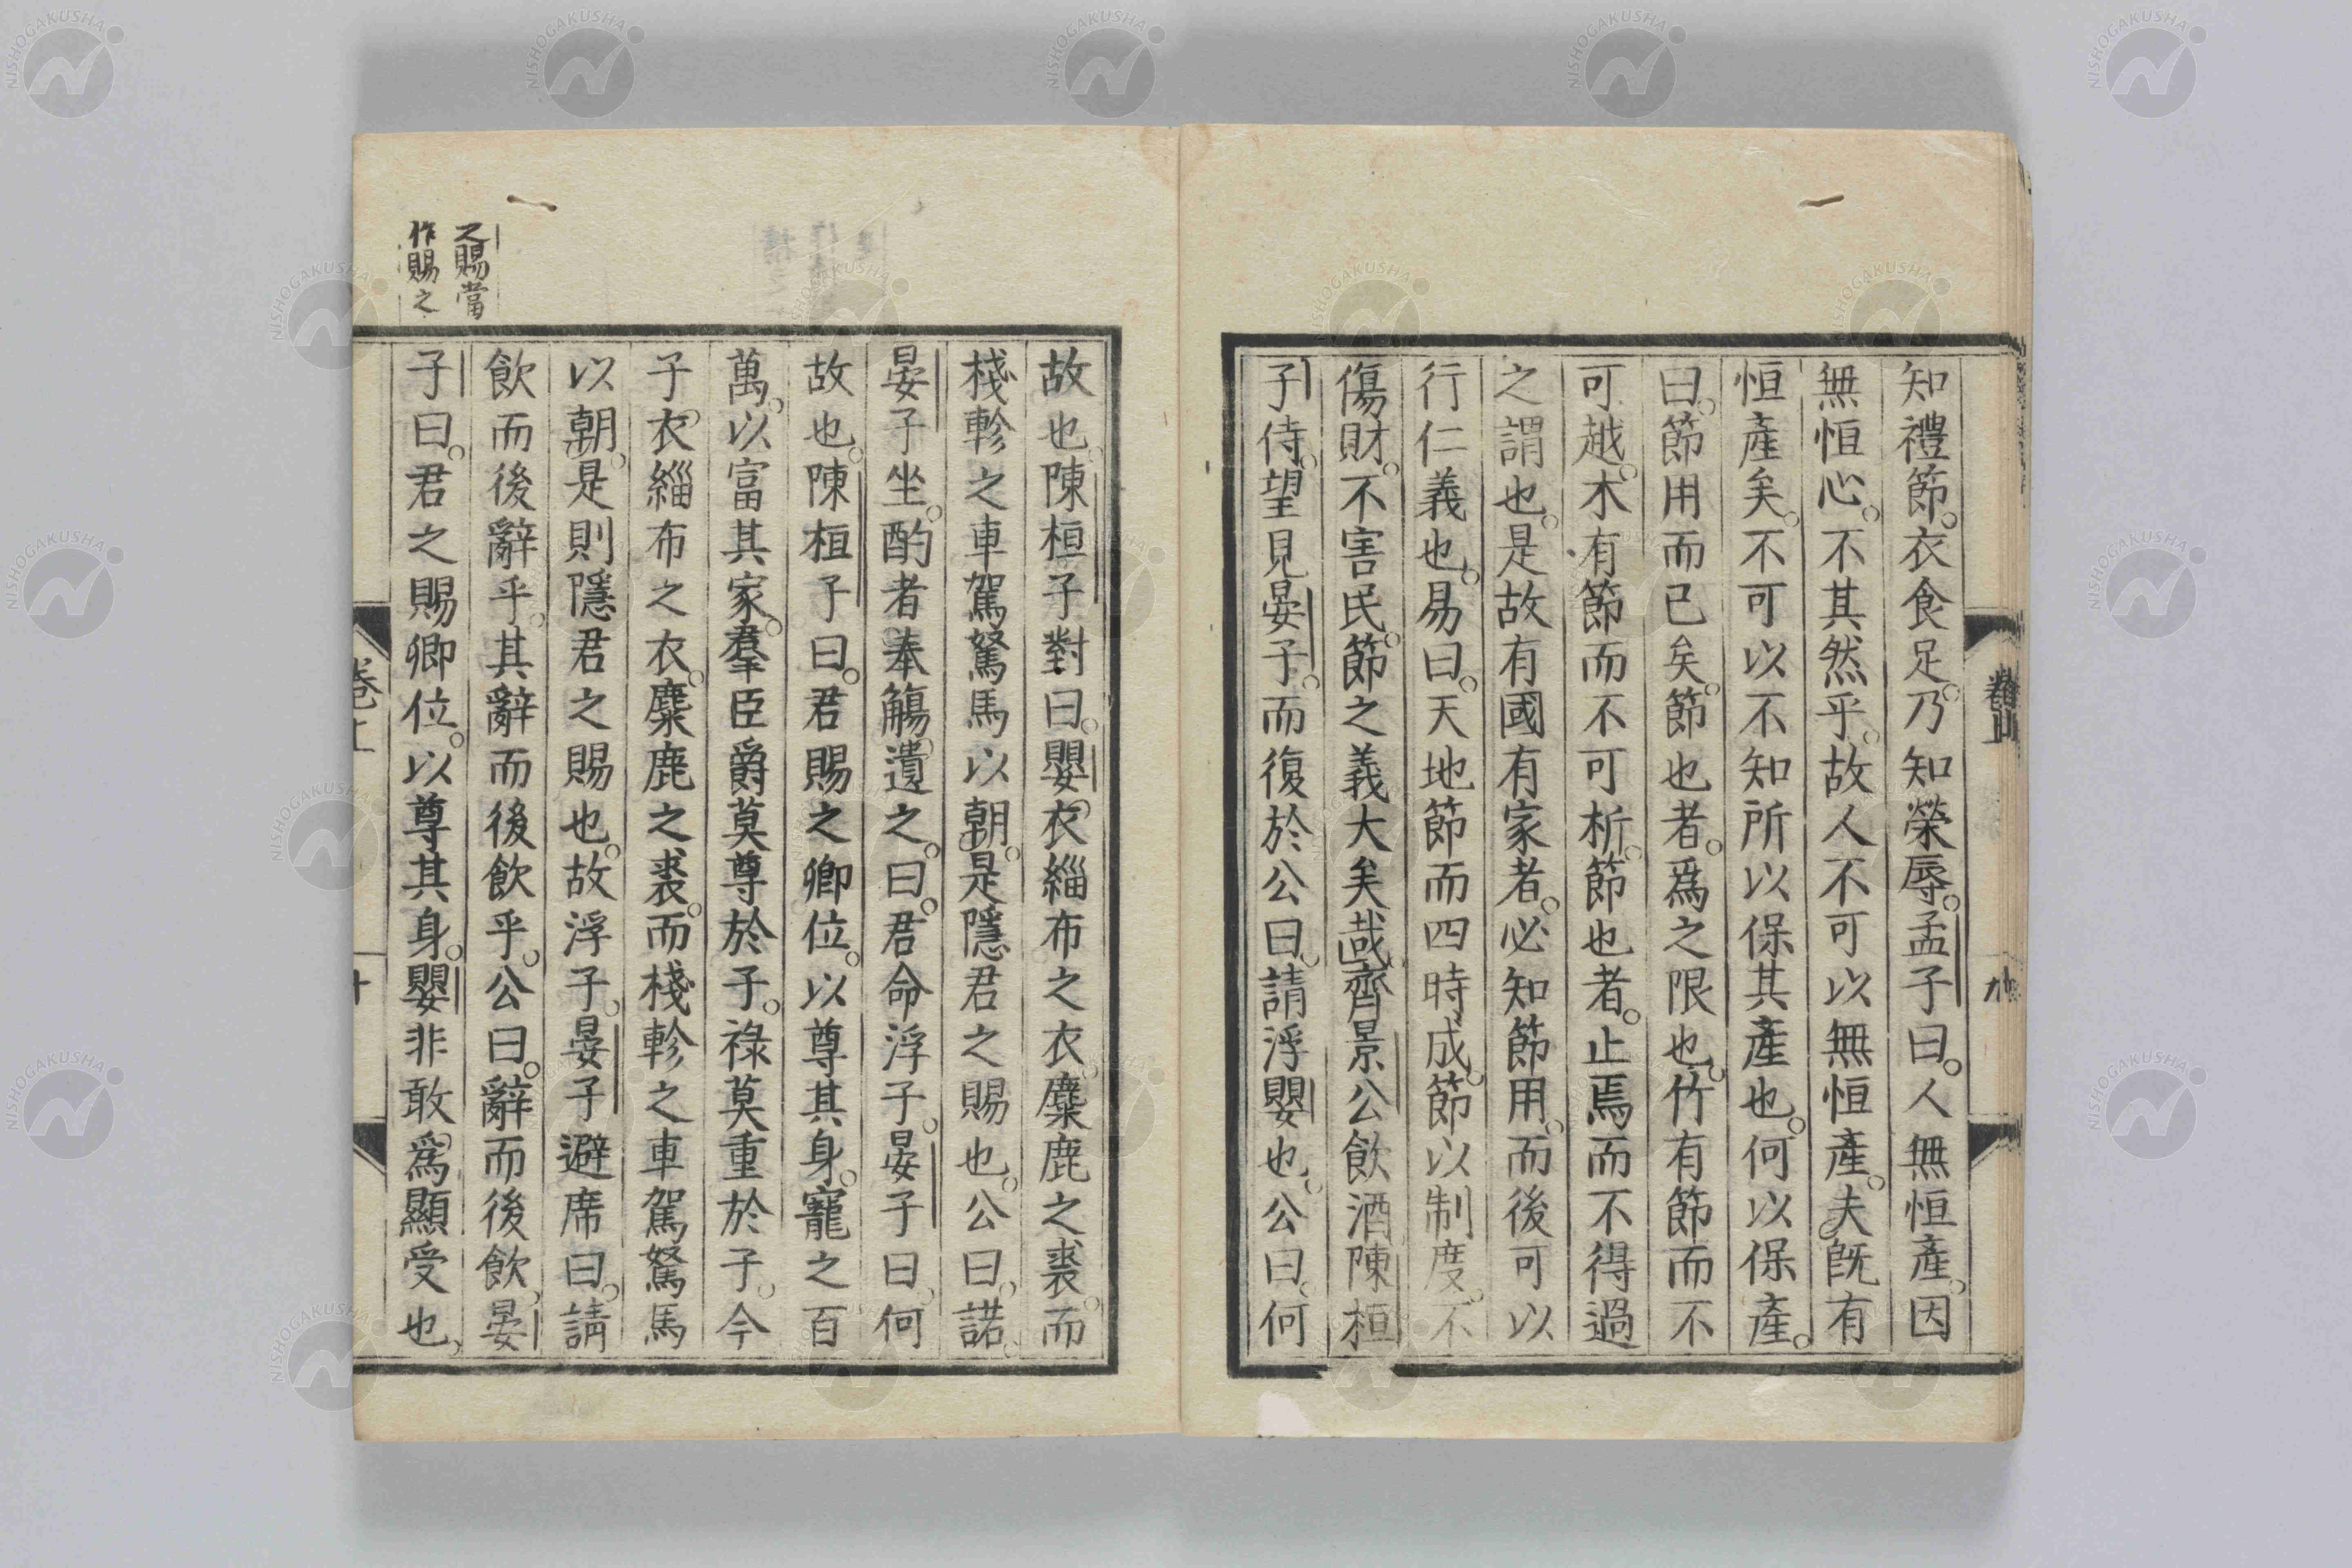 知禮節。衣食足。乃知榮辱。孟子曰。人無恒產。因
無恒心。不其然乎。故人不可以無恒產。夫既有
恒產矣。不可以不知所以保其產也。何以保產。
曰。節用而已矣。節也者。爲之限也。竹有節而不
可越。木有節而不可析。節也者。止焉而不得過
之謂也。是故有國有家者。必知節用。而後可以
行仁義也。易曰。天地節而四時成。節以制度。不
傷財。不害民。節之義大矣哉。齊景公飲酒。陳桓
子侍。望見晏子。而復於公曰。請浮嬰也。公曰。何
故也。陳桓子對曰。嬰衣緇布之衣。麋鹿之裘。而
棧軫之車。駕駑馬以朝。是隱君之賜也。公曰。諾。
晏子坐。酌者奉觴。遺之。曰。君命浮子。晏子曰。何
故也。陳桓子曰。君賜之卿位。以尊其身。寵之百
萬。以富其家。羣臣爵莫尊於子。祿莫重於子。今
子衣緇布之衣。麋鹿之裘。而棧軫之車。駕駑馬
以朝。是則隱君之賜也。故浮子。晏子避席曰。請
飲而後辭乎。其辭而後飲乎。公曰。辭而後飲。晏
子曰。君之賜卿位。以尊其身。嬰非敢爲顯受也。
之賜當
作賜之
NISHOGAKUSHA